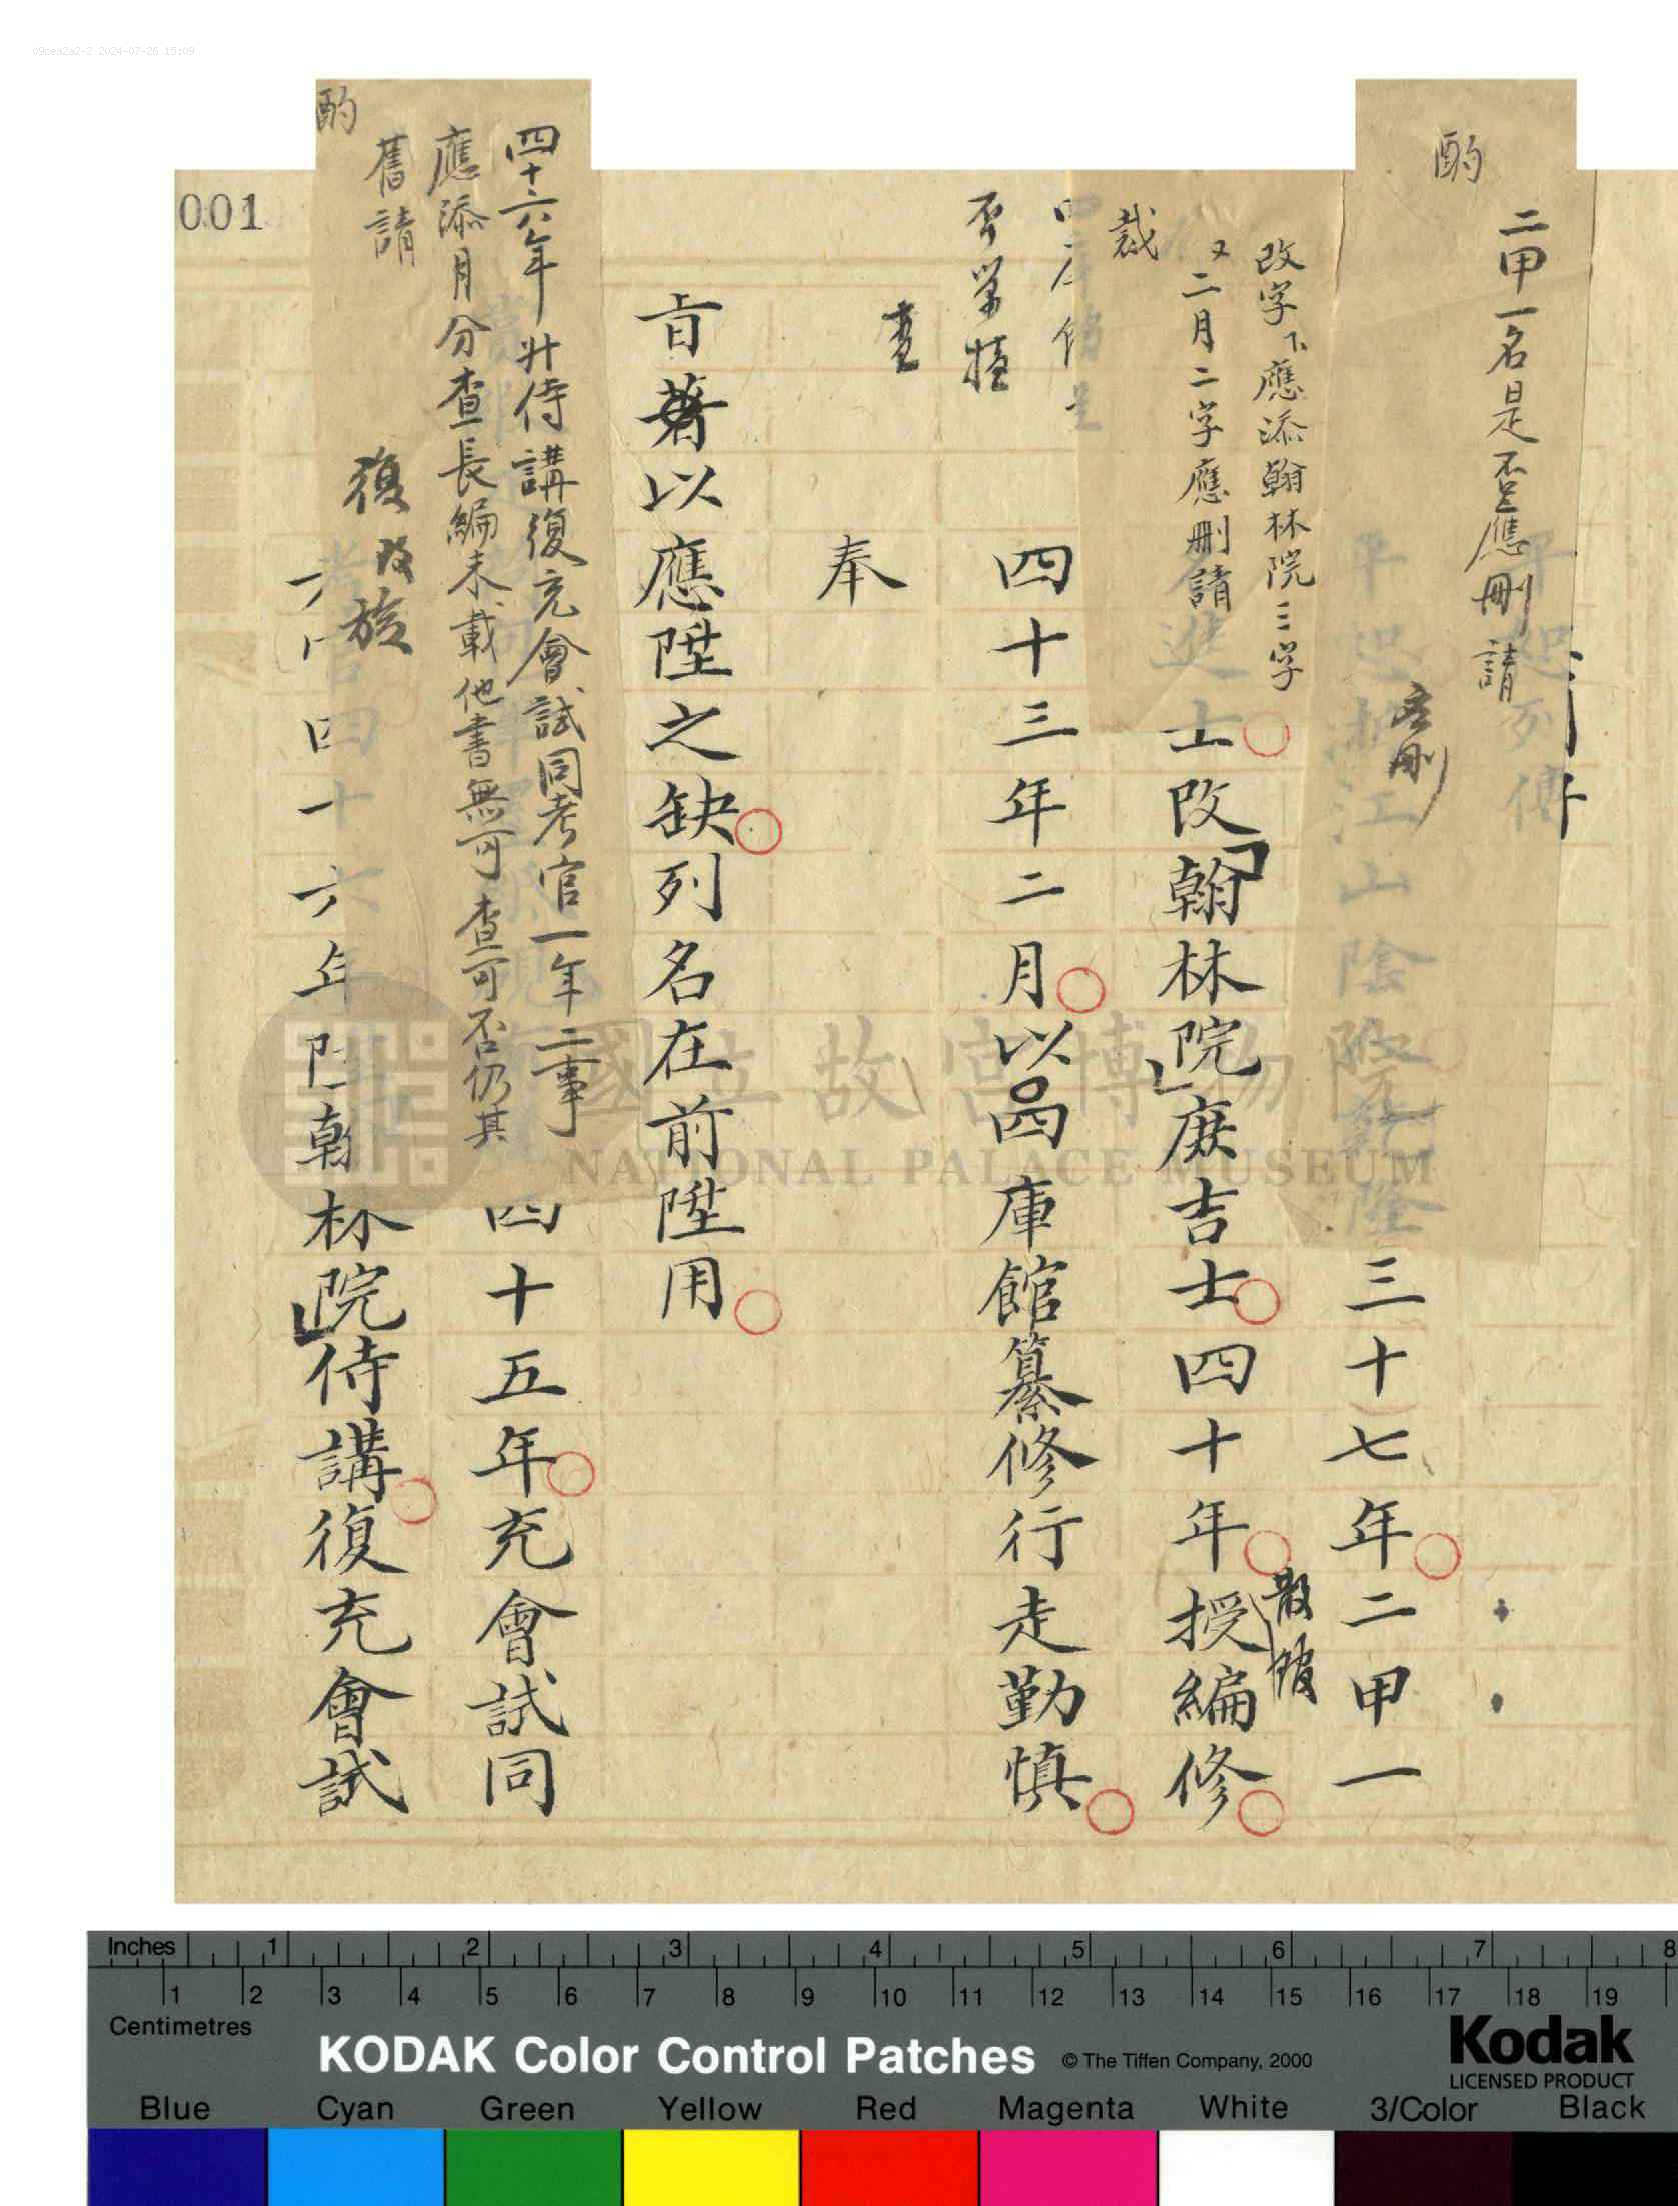 09cea2a2-2 2024-07-26 15:09
酌
二甲一名是否應刪請
應刪
三十七年二甲一
改字下應添翰林院三字
又二月二字應刪請
裁
進士改翰林院庶吉士四十年授編修
散館
四十三年二月以四庫館纂修行走勤慎
奉
旨著以應陞之缺列名在前陞用
四十六年升侍講復充會試同考官一年二事
應添月分查長編未載他書無可查可否仍其
舊請
酌
復改旋
四十五年充會試同
四十六年陞翰林院侍講復充會試
001
國立故宮博物院
NATIONAL PALACE MUSEUM
Inches 1 2 3 4 5 6 7 8
1 2 3 4 5 6 7 8 9 10 11 12 13 14 15 16 17 18 19
Centimetres
KODAK Color Control Patches © The Tiffen Company, 2000
Kodak
LICENSED PRODUCT
Blue Cyan Green Yellow Red Magenta White 3/Color Black